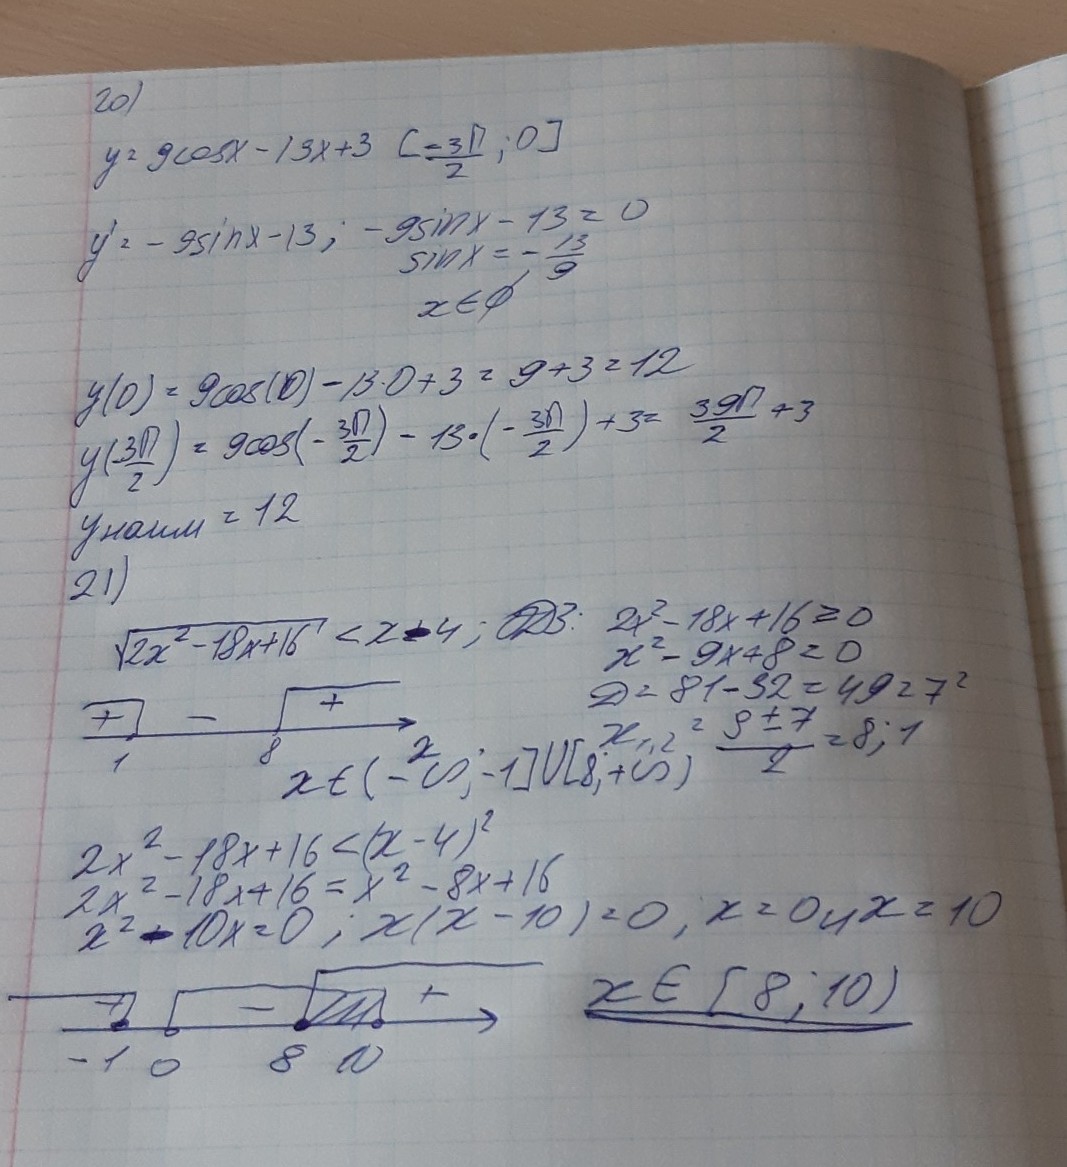 20)
y = 9cosx - 13x + 3 [-3П/2 ; 0]
y' = - 9sinx - 13 ; - 9sinx - 13 = 0
sinx = - 13/9
x ∈ ∅
y(0) = 9cos(0) - 13·0 + 3 = 9 + 3 = 12
y(-3П/2) = 9cos(-3П/2) - 13·(-3П/2) + 3 = 39П/2 + 3
yнаим = 12
21)
√(2x² - 18x + 16) < x - 4 ; ОДЗ: 2x² - 18x + 16 ≥ 0
x² - 9x + 8 = 0
D = 81 - 32 = 49 = 7²
x₁,₂ = 9 ± 7 / 2 = 8; 1
+ - +
1 8 x
x ∈ (-∞; -1] U [8; +∞)
2x² - 18x + 16 < (x - 4)²
2x² - 18x + 16 = x² - 8x + 16
x² - 10x = 0 ; x(x - 10) = 0 , x = 0 и x = 10
+ - +
-1 0 8 10
x ∈ [8; 10)